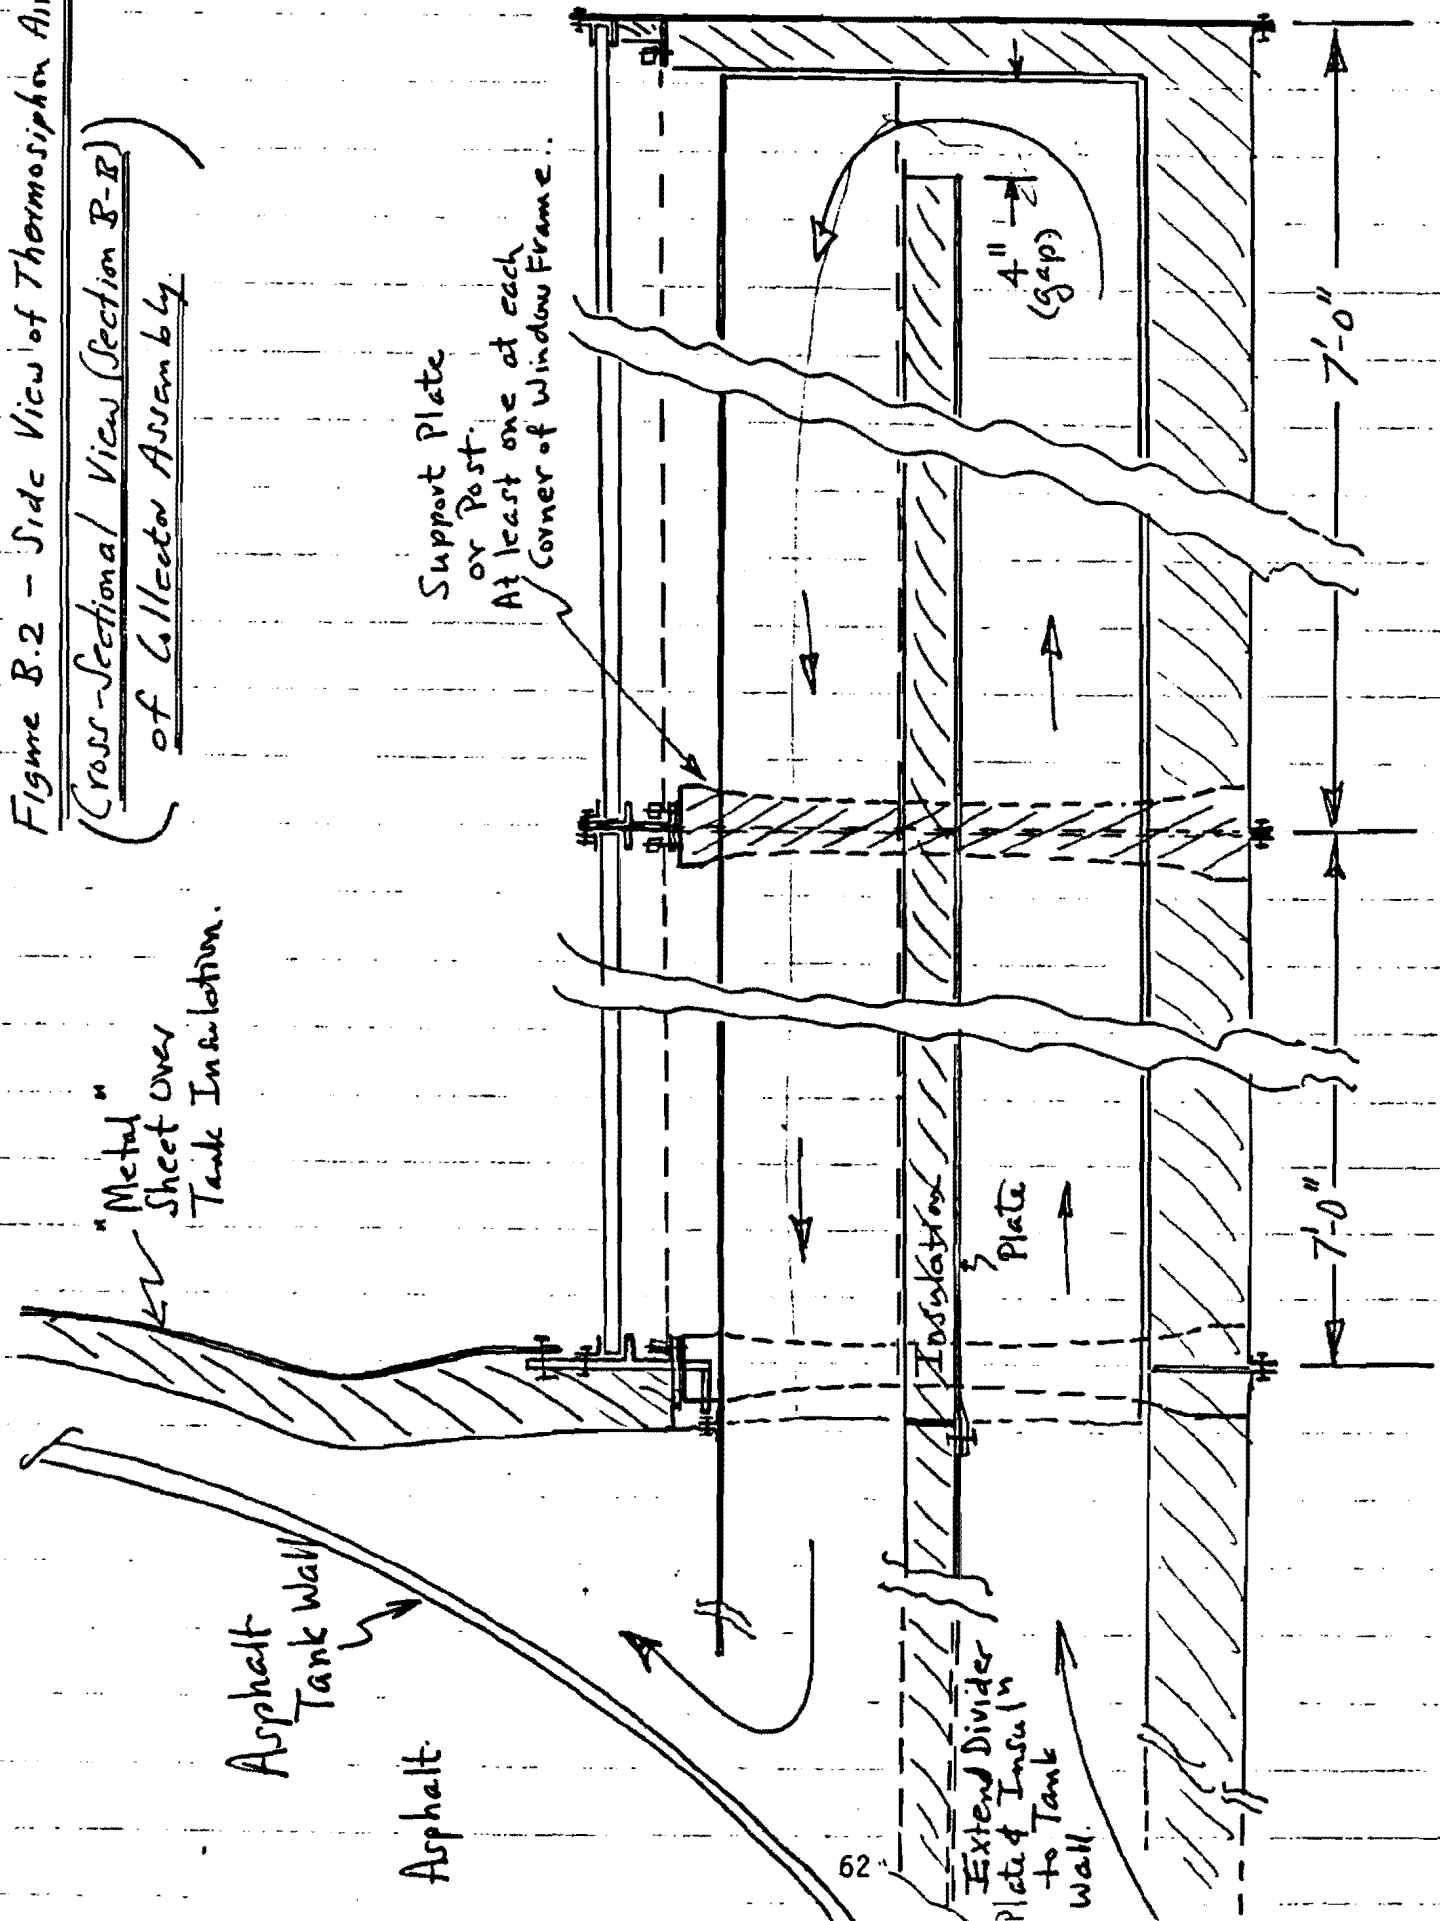 Figure B.2 - Side View of Thermosiphon Air
(Cross-Sectional View (Section B-B)
of Collector Assembly)
"Metal"
Sheet Over
Tank Insulation.
Support Plate
or Post.
At least one at each
Corner of Window Frame..
Asphalt
Tank Wall
Asphalt.
4"
(gap)
Insulation
Plate
Extend Divider
Plate & Insul'n
to Tank
Wall.
7'-0"
7'-0"
62